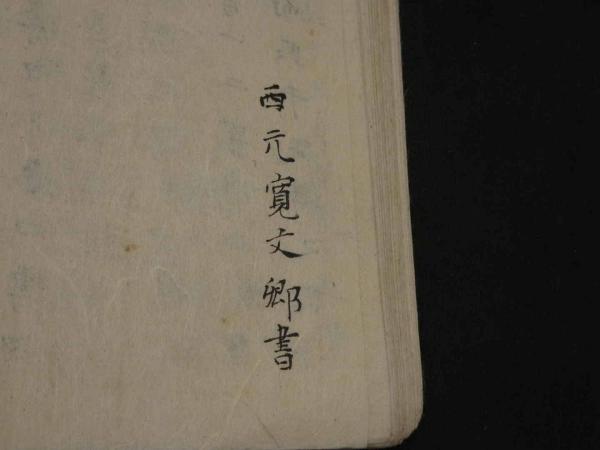 西元寛文郷書